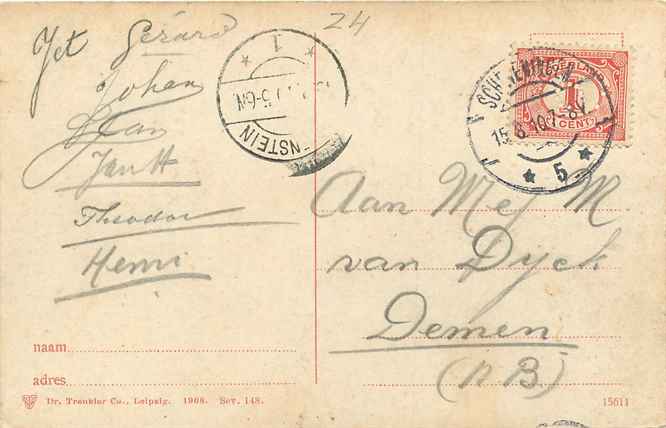 24
Jet Gérard
Johan
Jan H
Theodor
Henri
1
5-6N
NSTEIN
SCHEVENINGEN
15.8.10.7-8V
5
1
CENT
Aan Mej M
van Dyck
Demen
(N B)
naam
adres
Dr. Trenkler Co., Leipzig. 1908. Sev. 148.
15611